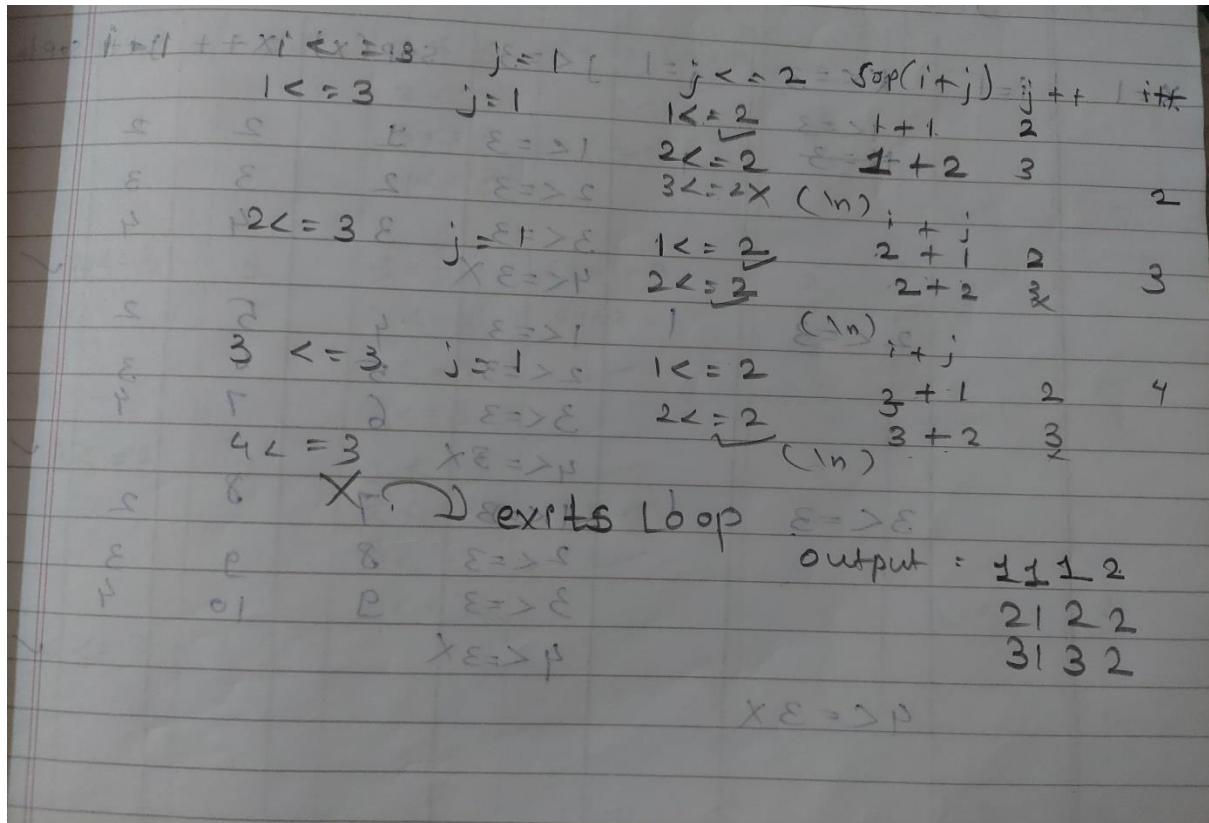 i <= 3 j = 1 j <= 2 Sop(i+j) j++ i++
1 <= 3 j = 1 1 <= 2 1 + 1 2
2 <= 2 1 + 2 3
3 <= 2 X (\n) 2
i + j
2 <= 3 j = 1 1 <= 2 2 + 1 2
2 <= 2 2 + 2 3 3
(\n) i + j
3 <= 3 j = 1 1 <= 2
3 + 1 2 4
2 <= 2 3 + 2 3
4 <= 3 (\n)
X exits Loop
output = 11 1 2
21 2 2
31 3 2